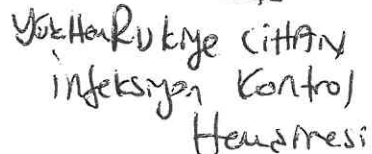 Yük.Hem Rukiye CİHAN
infeksiyon Kontrol
Hemşiresi